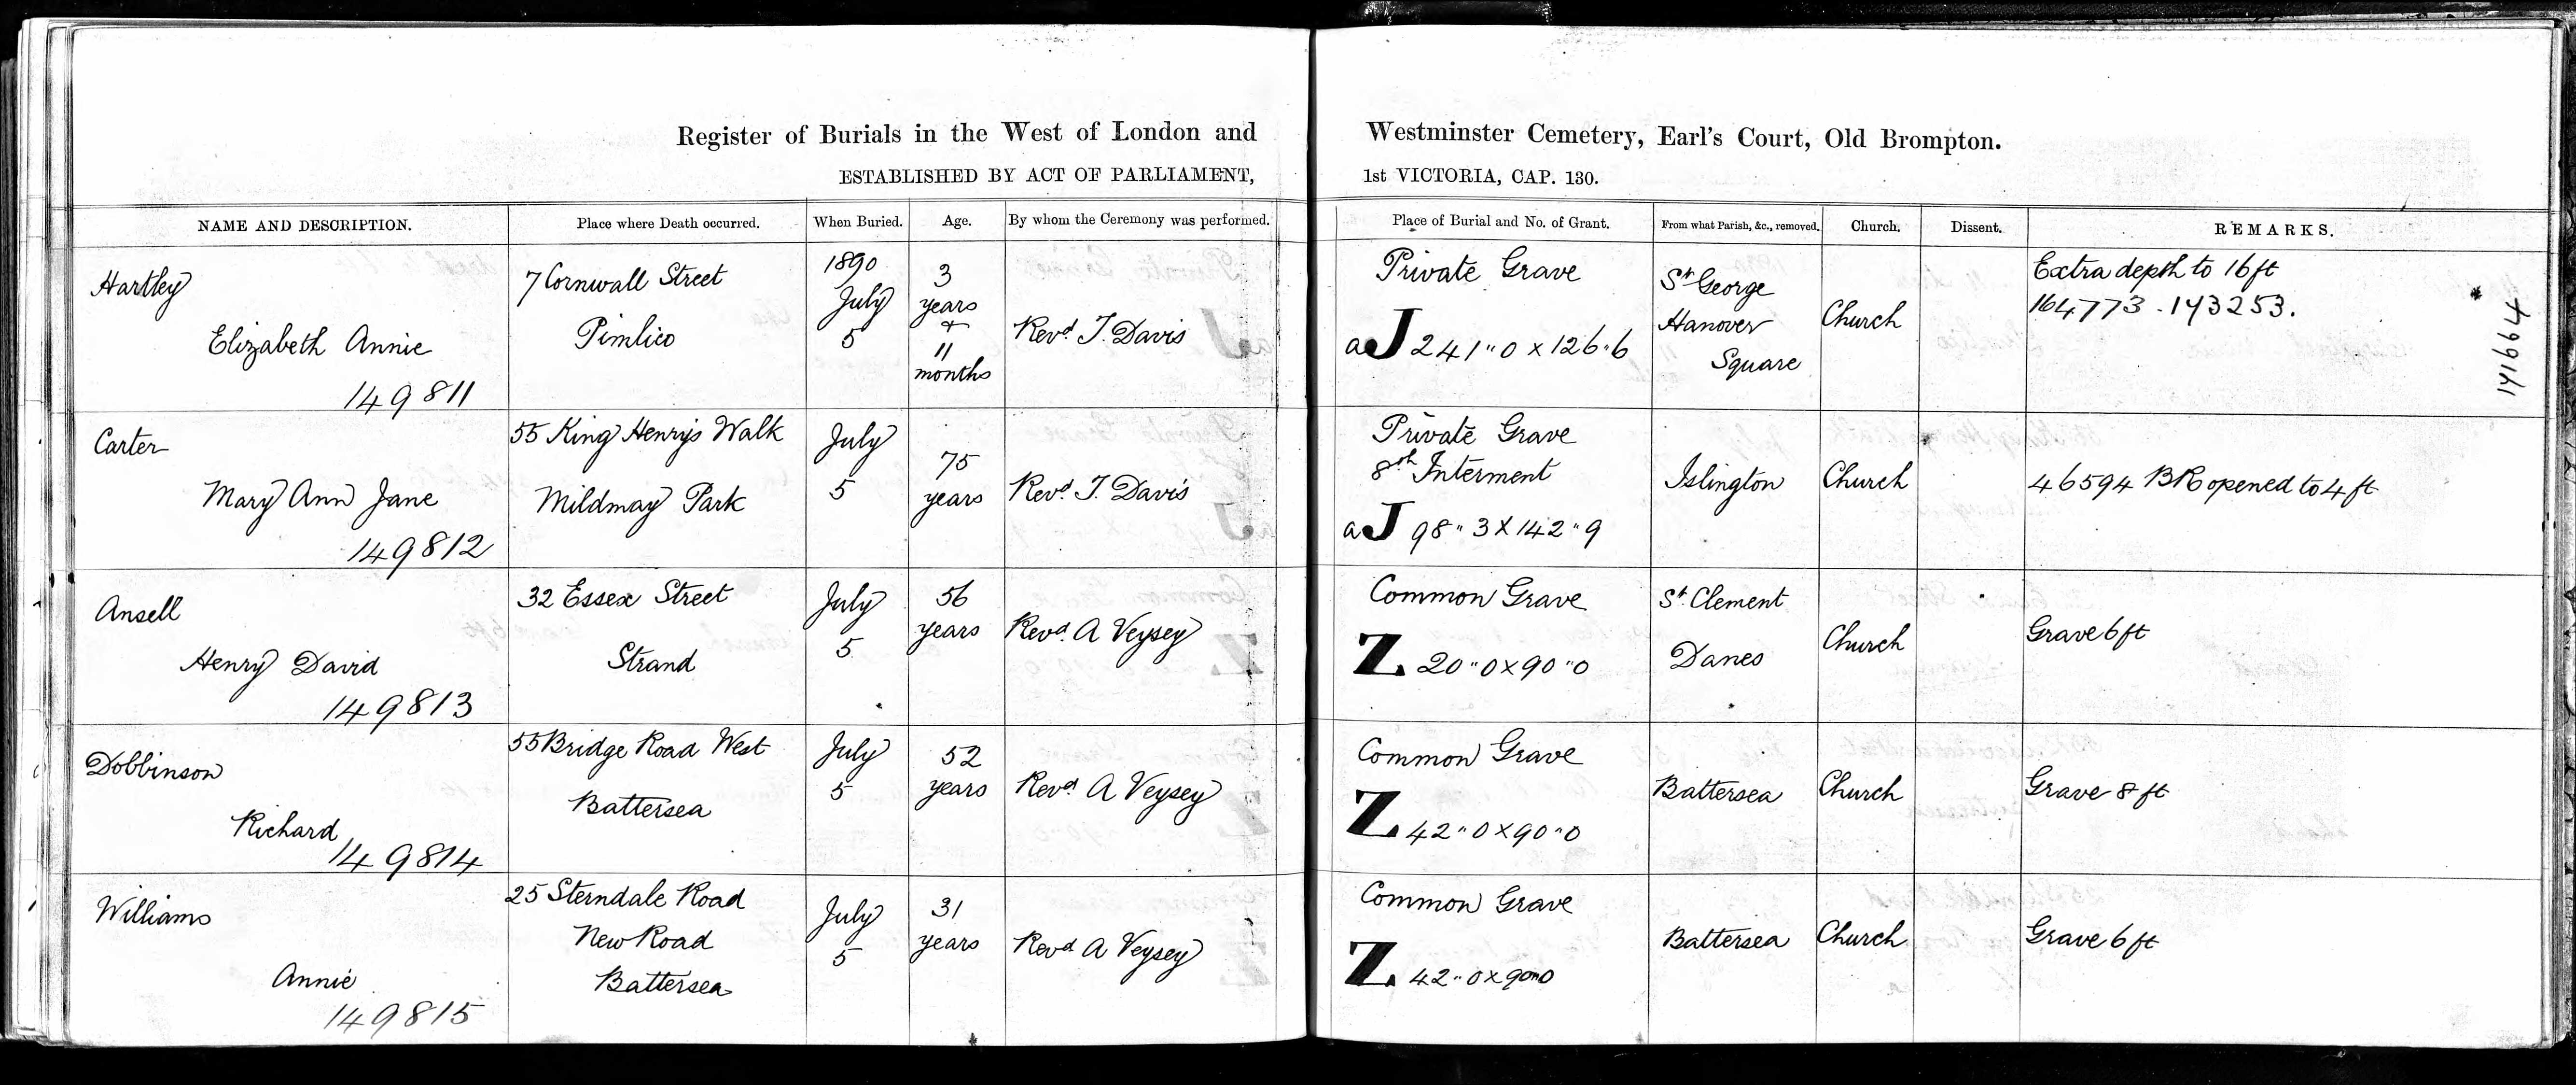 Register of Burials in the West of London and Westminster Cemetery, Earl's Court, Old Brompton.
ESTABLISHED BY ACT OF PARLIAMENT, 1st VICTORIA, CAP. 130.
NAME AND DESCRIPTION. Place where Death occurred. When Buried. Age. By whom the Ceremony was performed. Place of Burial and No. of Grant. From what Parish, &c., removed. Church. Dissent. REMARKS.
Hartley
Elizabeth Annie
149811
7 Cornwall Street
Pimlico
1890
July
5
3
years
+
11
months
Revd. T. Davis
Private Grave
aJ 241"0 x 126"6
St George
Hanover
Square
Church
Extra depth to 16 ft
164773 - 143253.
141664
Carter
Mary Ann Jane
149812
55 King Henrys Walk
Mildmay Park
July
5
75
years
Revd. T. Davis
Private Grave
8th Interment
aJ 98"3 X 142"9
Islington
Church
46594 BReopened to 4 ft
Ansell
Henry David
149813
32 Essex Street
Strand
July
5
56
years
Revd. A Veysey
Common Grave
Z 20"0 x 90"0
St. Clement
Danes
Church
Grave 6 ft
Dobbinson
Richard
149814
55 Bridge Road West
Battersea
July
5
52
years
Revd. A Veysey
Common Grave
Z 42"0 x 90"0
Battersea
Church
Grave 8 ft
Williams
Annie
149815
25 Sterndale Road
New Road
Battersea
July
5
31
years
Revd A Veysey
Common Grave
Z 42"0 x 90"0
Battersea
Church
Grave 6 ft